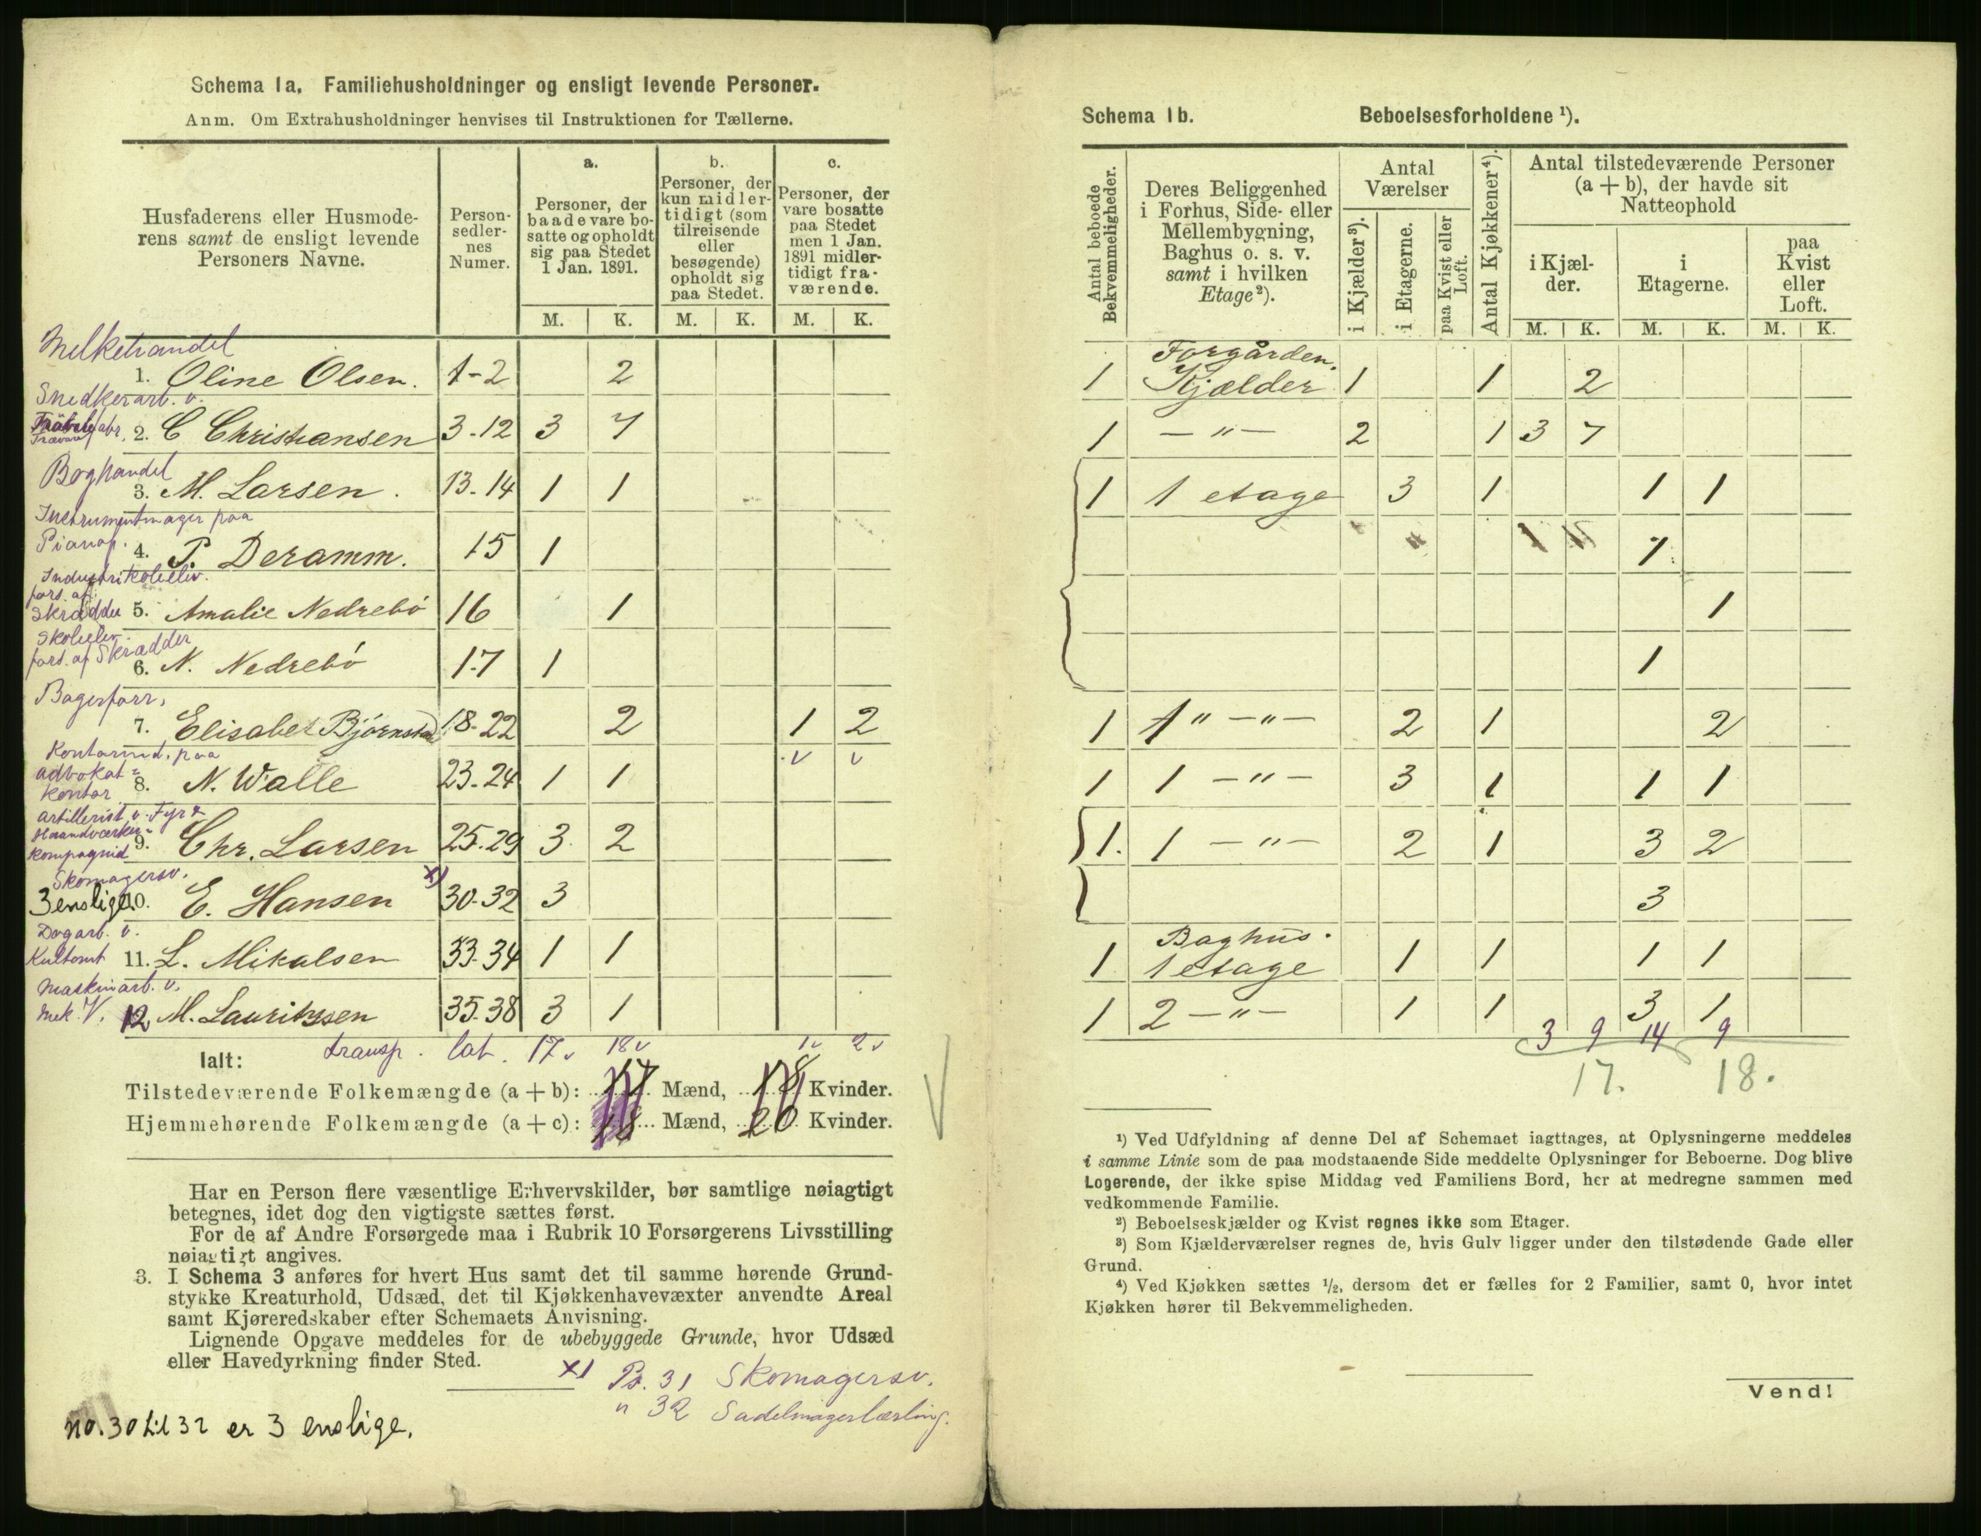 Schema 1a. Familiehusholdninger og ensligt levende Personer.
Anm. Om Extrahusholdninger henvises til Instruktionen for Tællerne.
Husfaderens eller Husmoderens samt de ensligt levende Personers Navne.
Personsedlernes Numer.
a. Personer, der baade vare bosatte og opholdt sig paa Stedet 1 Jan. 1891.
b. Personer, der kun midlertidigt (som tilreisende eller besøgende) opholdt sig paa Stedet.
c. Personer, der vare bosatte paa Stedet men 1 Jan. 1891 midlertidigt fraværende.
M. K. M. K. M. K.
Melkehandel
1. Oline Olsen. 1-2 2
Snedkerarb. v.
2. C Christiansen 3-12 3 7
Boghandel
3. M. Larsen. 13-14 1 1
Instrumentmager paa
Pianof.
4. P. Deramm. 15 1
Industriskoleelev.
fors. af
Skrædder 5. Amalie Nedrebó 16 1
Skoleelev.
fors. af Skrædder
6. N. Nedrebó 17 1
Bagerforr.
7. Elisabet Bjørnstad 18-22 2 1 2
Kontorind. paa v v
advokat-
kontor 8. N. Walle 23-24 1 1
Artillerist v. Fyr &
Haandværker-
kompagnid 9. Chr. Larsen 25-29 3 2
Skomagersv. x)
3 enslige 10. E. Hansen 30-32 3
Dagarb. v.
11. L. Mikalsen 33-34 1 1
Maskinarb. v.
Mek. V. 12 M. Lauritzsen 35-38 3 1
transp. lat. 17 v 18 v 1 v 2 v
Ialt:
Tilstedeværende Folkemængde (a + b): 17 Mænd, 18 Kvinder.
Hjemmehørende Folkemængde (a + c): 18 Mænd, 20 Kvinder.
Har en Person flere væsentlige Erhvervskilder, bør samtlige nøiagtigt
betegnes, idet dog den vigtigste sættes først.
For de af Andre Forsørgede maa i Rubrik 10 Forsørgerens Livsstilling
nøiagtigt angives.
3. I Schema 3 anføres for hvert Hus samt det til samme hørende Grund-
stykke Kreaturhold, Udsæd, det til Kjøkkenhavevæxter anvendte Areal
samt Kjøreredskaber efter Schemaets Anvisning.
Lignende Opgave meddeles for de ubebyggede Grunde, hvor Udsæd
eller Havedyrkning finder Sted.
x) Ps. 31 Skomagersv.
" 32 Sadelmagerlærling.
no. 30 til 32 er 3 enslige.
Schema 1b. Beboelsesforholdene ¹).
Antal beboede Bekvemmeligheder.
Deres Beliggenhed i Forhus, Side- eller Mellembygning, Baghus o. s. v. samt i hvilken Etage²).
Antal Værelser
i Kjælder³).
i Etagerne.
paa Kvist eller Loft.
Antal Kjøkkener⁴).
Antal tilstedeværende Personer (a + b), der havde sit Natteophold
i Kjælder.
i Etagerne.
paa Kvist eller Loft.
M. K. M. K. M. K.
Forgården.
1 Kjælder 1 1 2
1 — " — 2 1 3 7
1 1 etage 3 1 1 1
1
1
1
1 1 " — " — 2 1 2
1 1 — " — 3 1 1 1
1. 1 — " — 2 1 3 2
3
Baghus.
1 1 etage 1 1 1 1
1 2 — " — 1 1 3 1
3 9 14 9
17. 18.
¹) Ved Udfyldning af denne Del af Schemaet iagttages, at Oplysningerne meddeles
i samme Linie som de paa modstaaende Side meddelte Oplysninger for Beboerne. Dog blive
Logerende, der ikke spise Middag ved Familiens Bord, her at medregne sammen med
vedkommende Familie.
²) Beboelseskjælder og Kvist regnes ikke som Etager.
³) Som Kjælderværelser regnes de, hvis Gulv ligger under den tilstødende Gade eller
Grund.
⁴) Ved Kjøkken sættes ½, dersom det er fælles for 2 Familier, samt 0, hvor intet
Kjøkken hører til Bekvemmeligheden.
Vend!